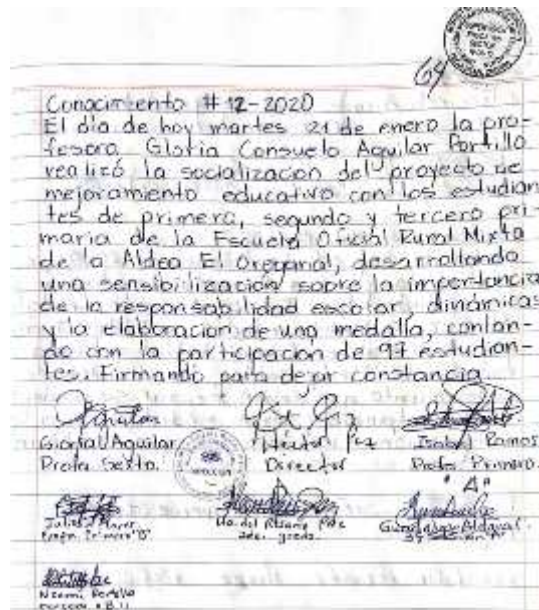 64
Conocimiento # 12-2020
El día de hoy martes 21 de enero la pro-
fesora Gloria Consuelo Aguilar Portillo
realizó la socialización del proyecto de
mejoramiento educativo con los estudian
tes de primero, segundo y tercero pri-
maria de la Escuela Oficial Rural Mixta
de la Aldea El Oreganal, desarrollando
una sensibilización sobre la importancia
de la responsabilidad escolar, dinámicas
y la elaboración de una medalla, contan-
do con la participación de 97 estudian-
tes. Firmando para dejar constancia
Gloria Aguilar Héctor Paz Isabel Ramos
Profa Sexto. Director Profa Primero.
"A"
Profa. Primero "B". Ma. del Rosario Paz Guadalupe
2do. grado.
Noemí Portillo
Tercero "B"